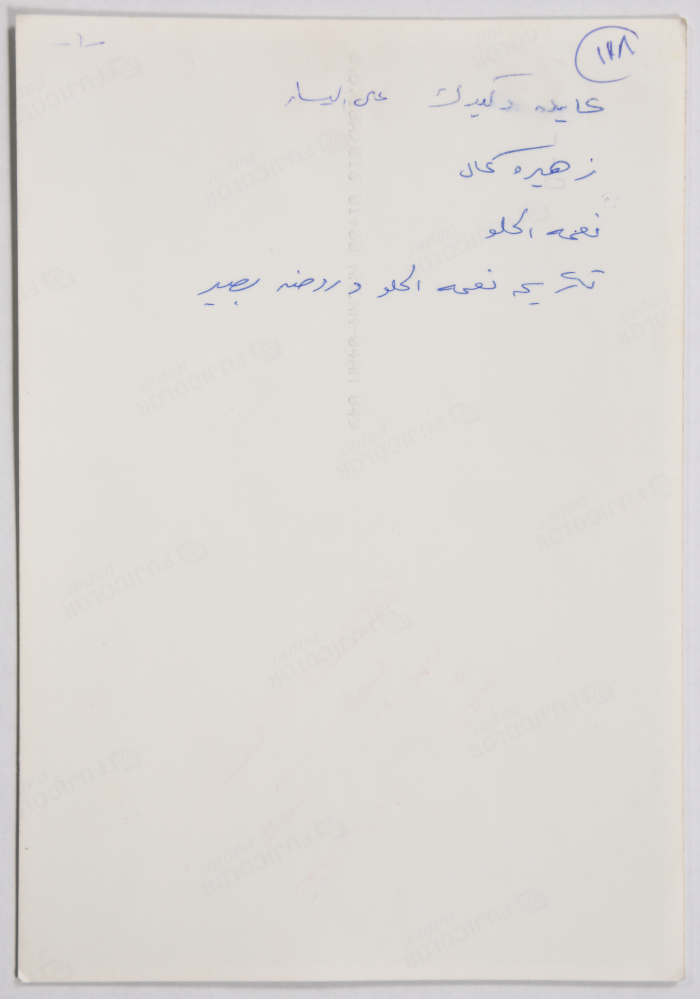 ١٢٨
- ١ -
عايده دكيدك على اليسار
زهيره كمال
نعمه الحلو
تكريم نعمه الحلو و روضه بصير
FUJICOLOR